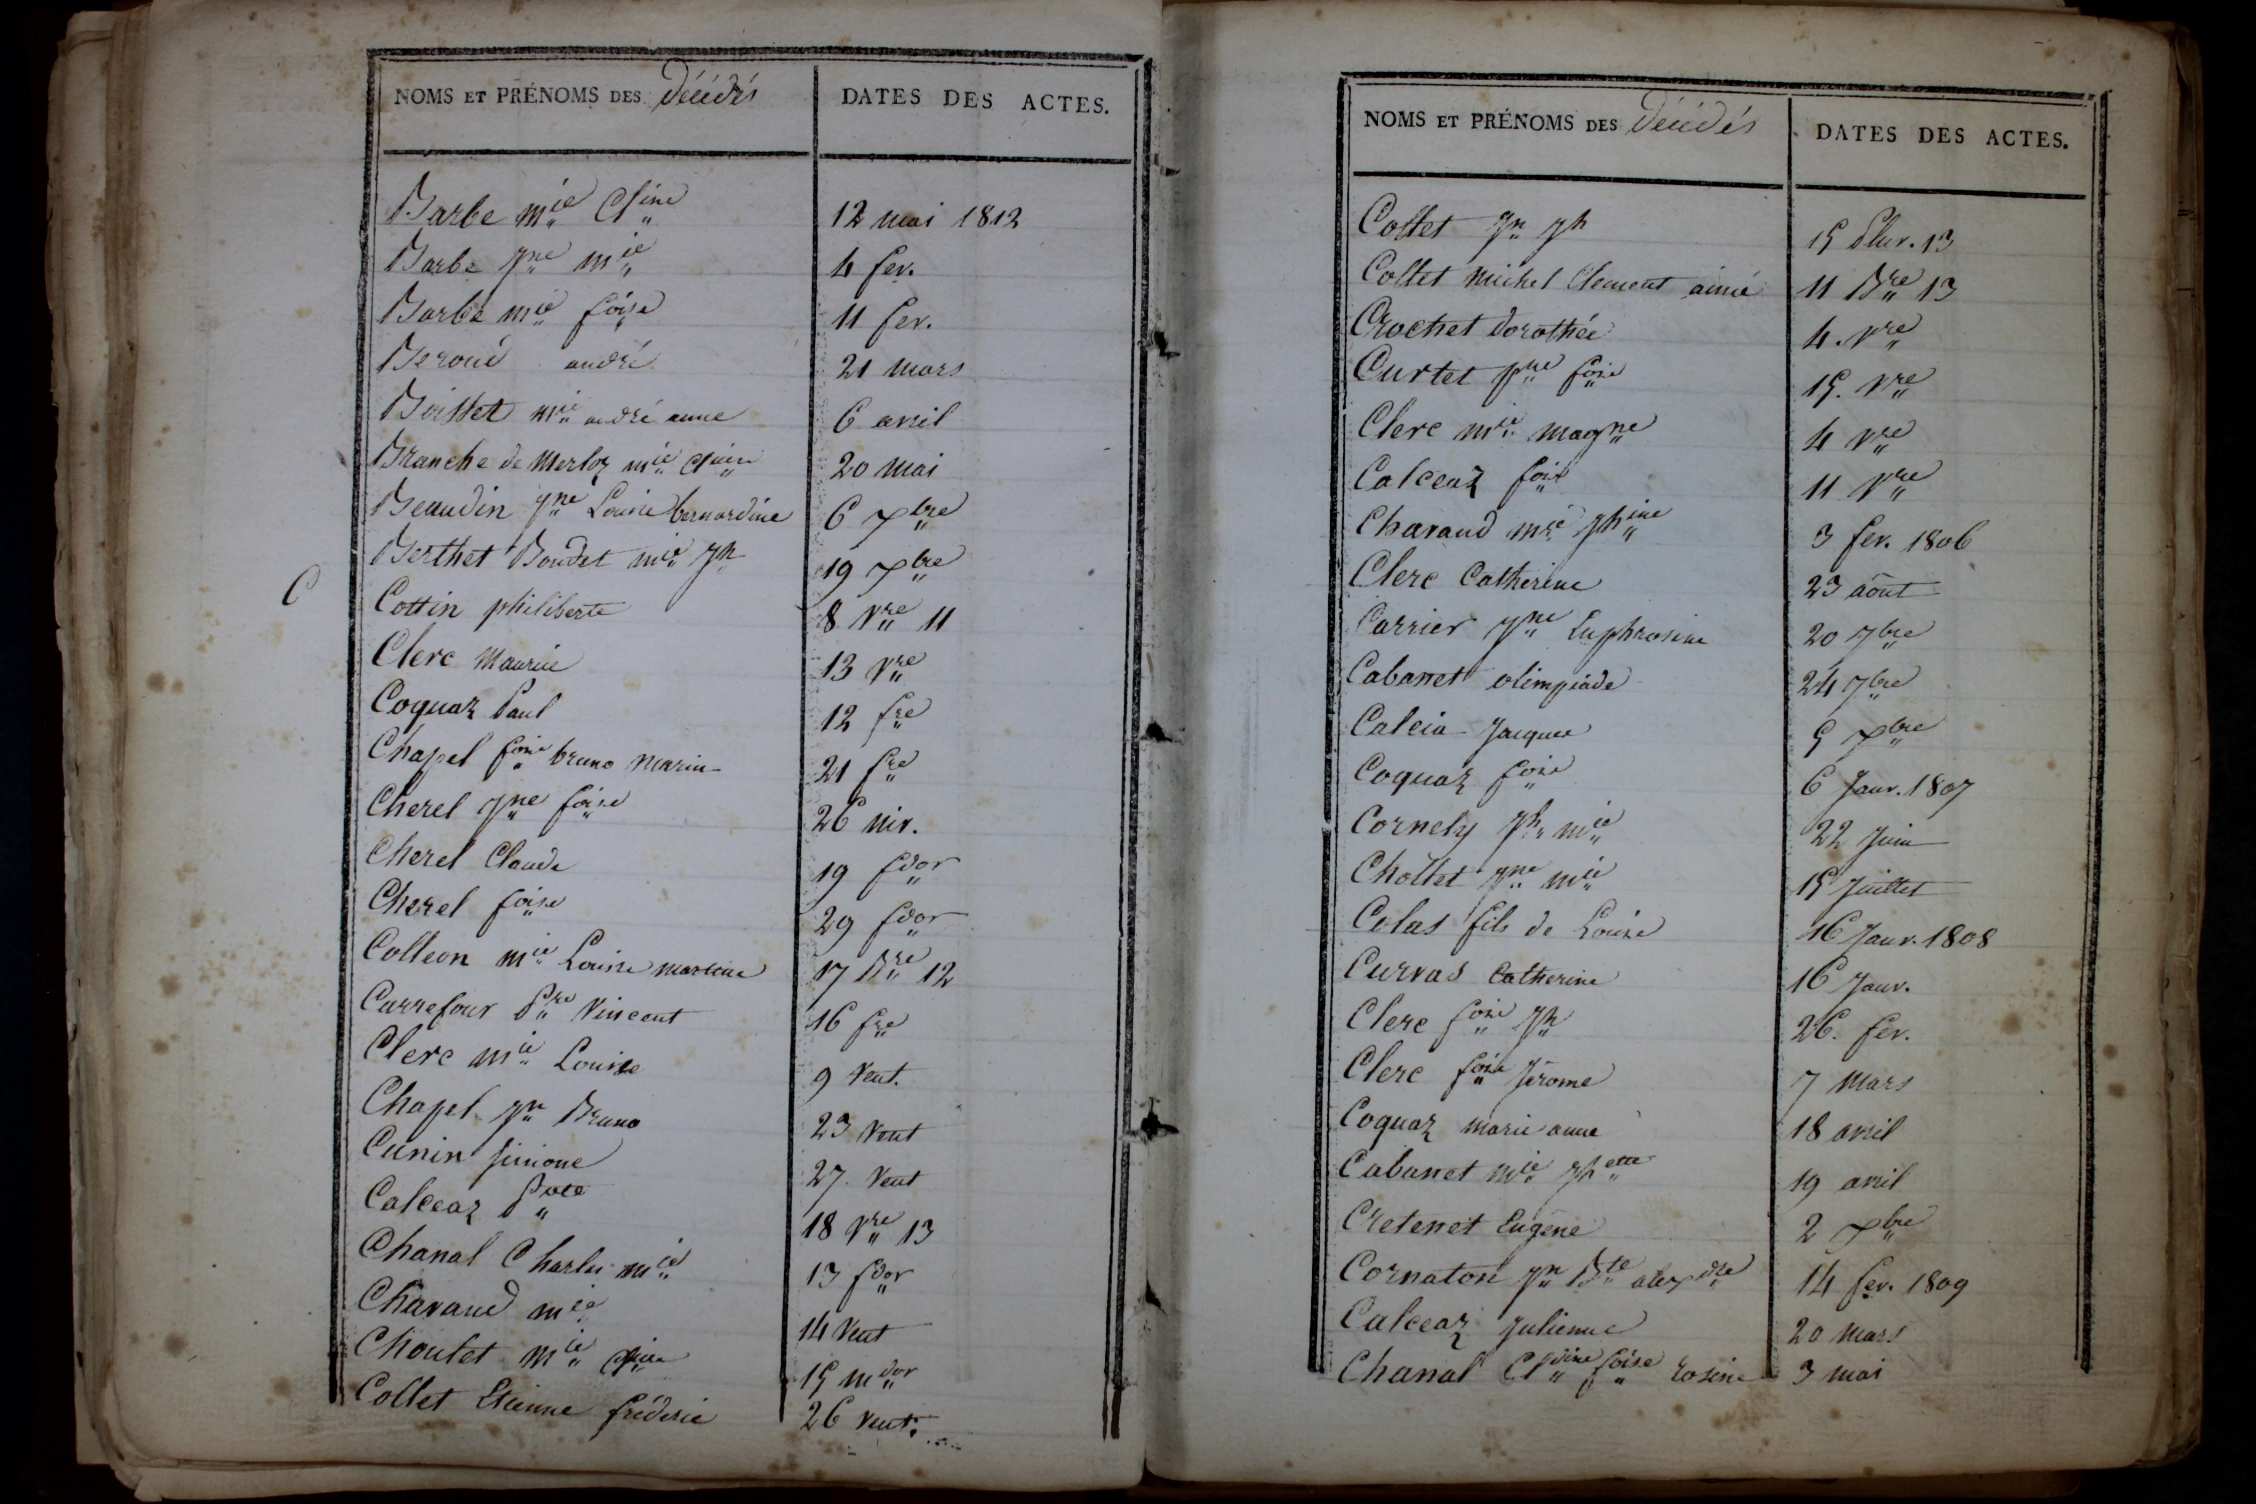 NOMS ET PRÉNOMS DES Décédés DATES DES ACTES.
Barbe mie Cline 12 mai 1812
Barbe Jne mie 4 fer.
Barbe mie foise 11 fer.
Beroud andré 21 mars
Boittet mie andré anne 6 avril
Branche de Merloz mie Claire 20 mai
Beaudin Jne Louise bernardine 6 Xbre
Berthet Boudet mie Jh 19 Xbre
C
Cottin philiberte 8 Vre 11
Clerc Maurice 13 Vre
Coquaz Paul 12 fre
Chapel foise bruno Marin 21 fre
Cherel Jne foise 26 niv.
Cherel Claude 19 fdor
Cherel foise 29 fdor
Colleon mie Louise martine 17 Bre 12
Carrefour Pre Vincent 16 fre
Clerc mie Louise 9 Vent.
Chapel Jn Bruno 23 Vent
Cunin Simone 27 Vent
Calceaz Pote 18 Vre 13
Chanal Charles mie 13 fdor
Charaud mie 14 Vent
Choulet mie Claire 15 mdor
Collet Etienne fréderic 26 Vent.
NOMS ET PRÉNOMS DES Décédés DATES DES ACTES.
Collet Jn Jh 15 Pluv. 13
Collet Michel Clement aimé 11 Bre 13
Crochet Dorothée 4. Vre
Curtet Jne foise 15. Vre
Clerc mie magne 4 Vre
Calceaz foix 11 Vre
Charaud mie Jhine 3 fer. 1806
Clerc Catherine 23 aôut
Carrier Jne Euphrosine 20 7bre
Cabanet olimpiade 24 7bre
Calcia Jacques 5 Xbre
Coquaz foise 6 Janv. 1807
Cornely Jh mie 22 Juin
Chollet Jne mie 15 Juillet
Colas fils de Louise 16 Janv. 1808
Curvas Catherine 16 Janv.
Clerc foise Jh 26. fer.
Clerc foise Jérome 7 Mars
Coquaz marie anne 18 avril
Cabanet mie Jhette 19 avril
Cretenet Eugène 2 Xbre
Cornaton Jn Bte alexdre 14 fer. 1809
Calceaz Julienne 20 Mars
Chanal Cldine foise rosine 3 mai